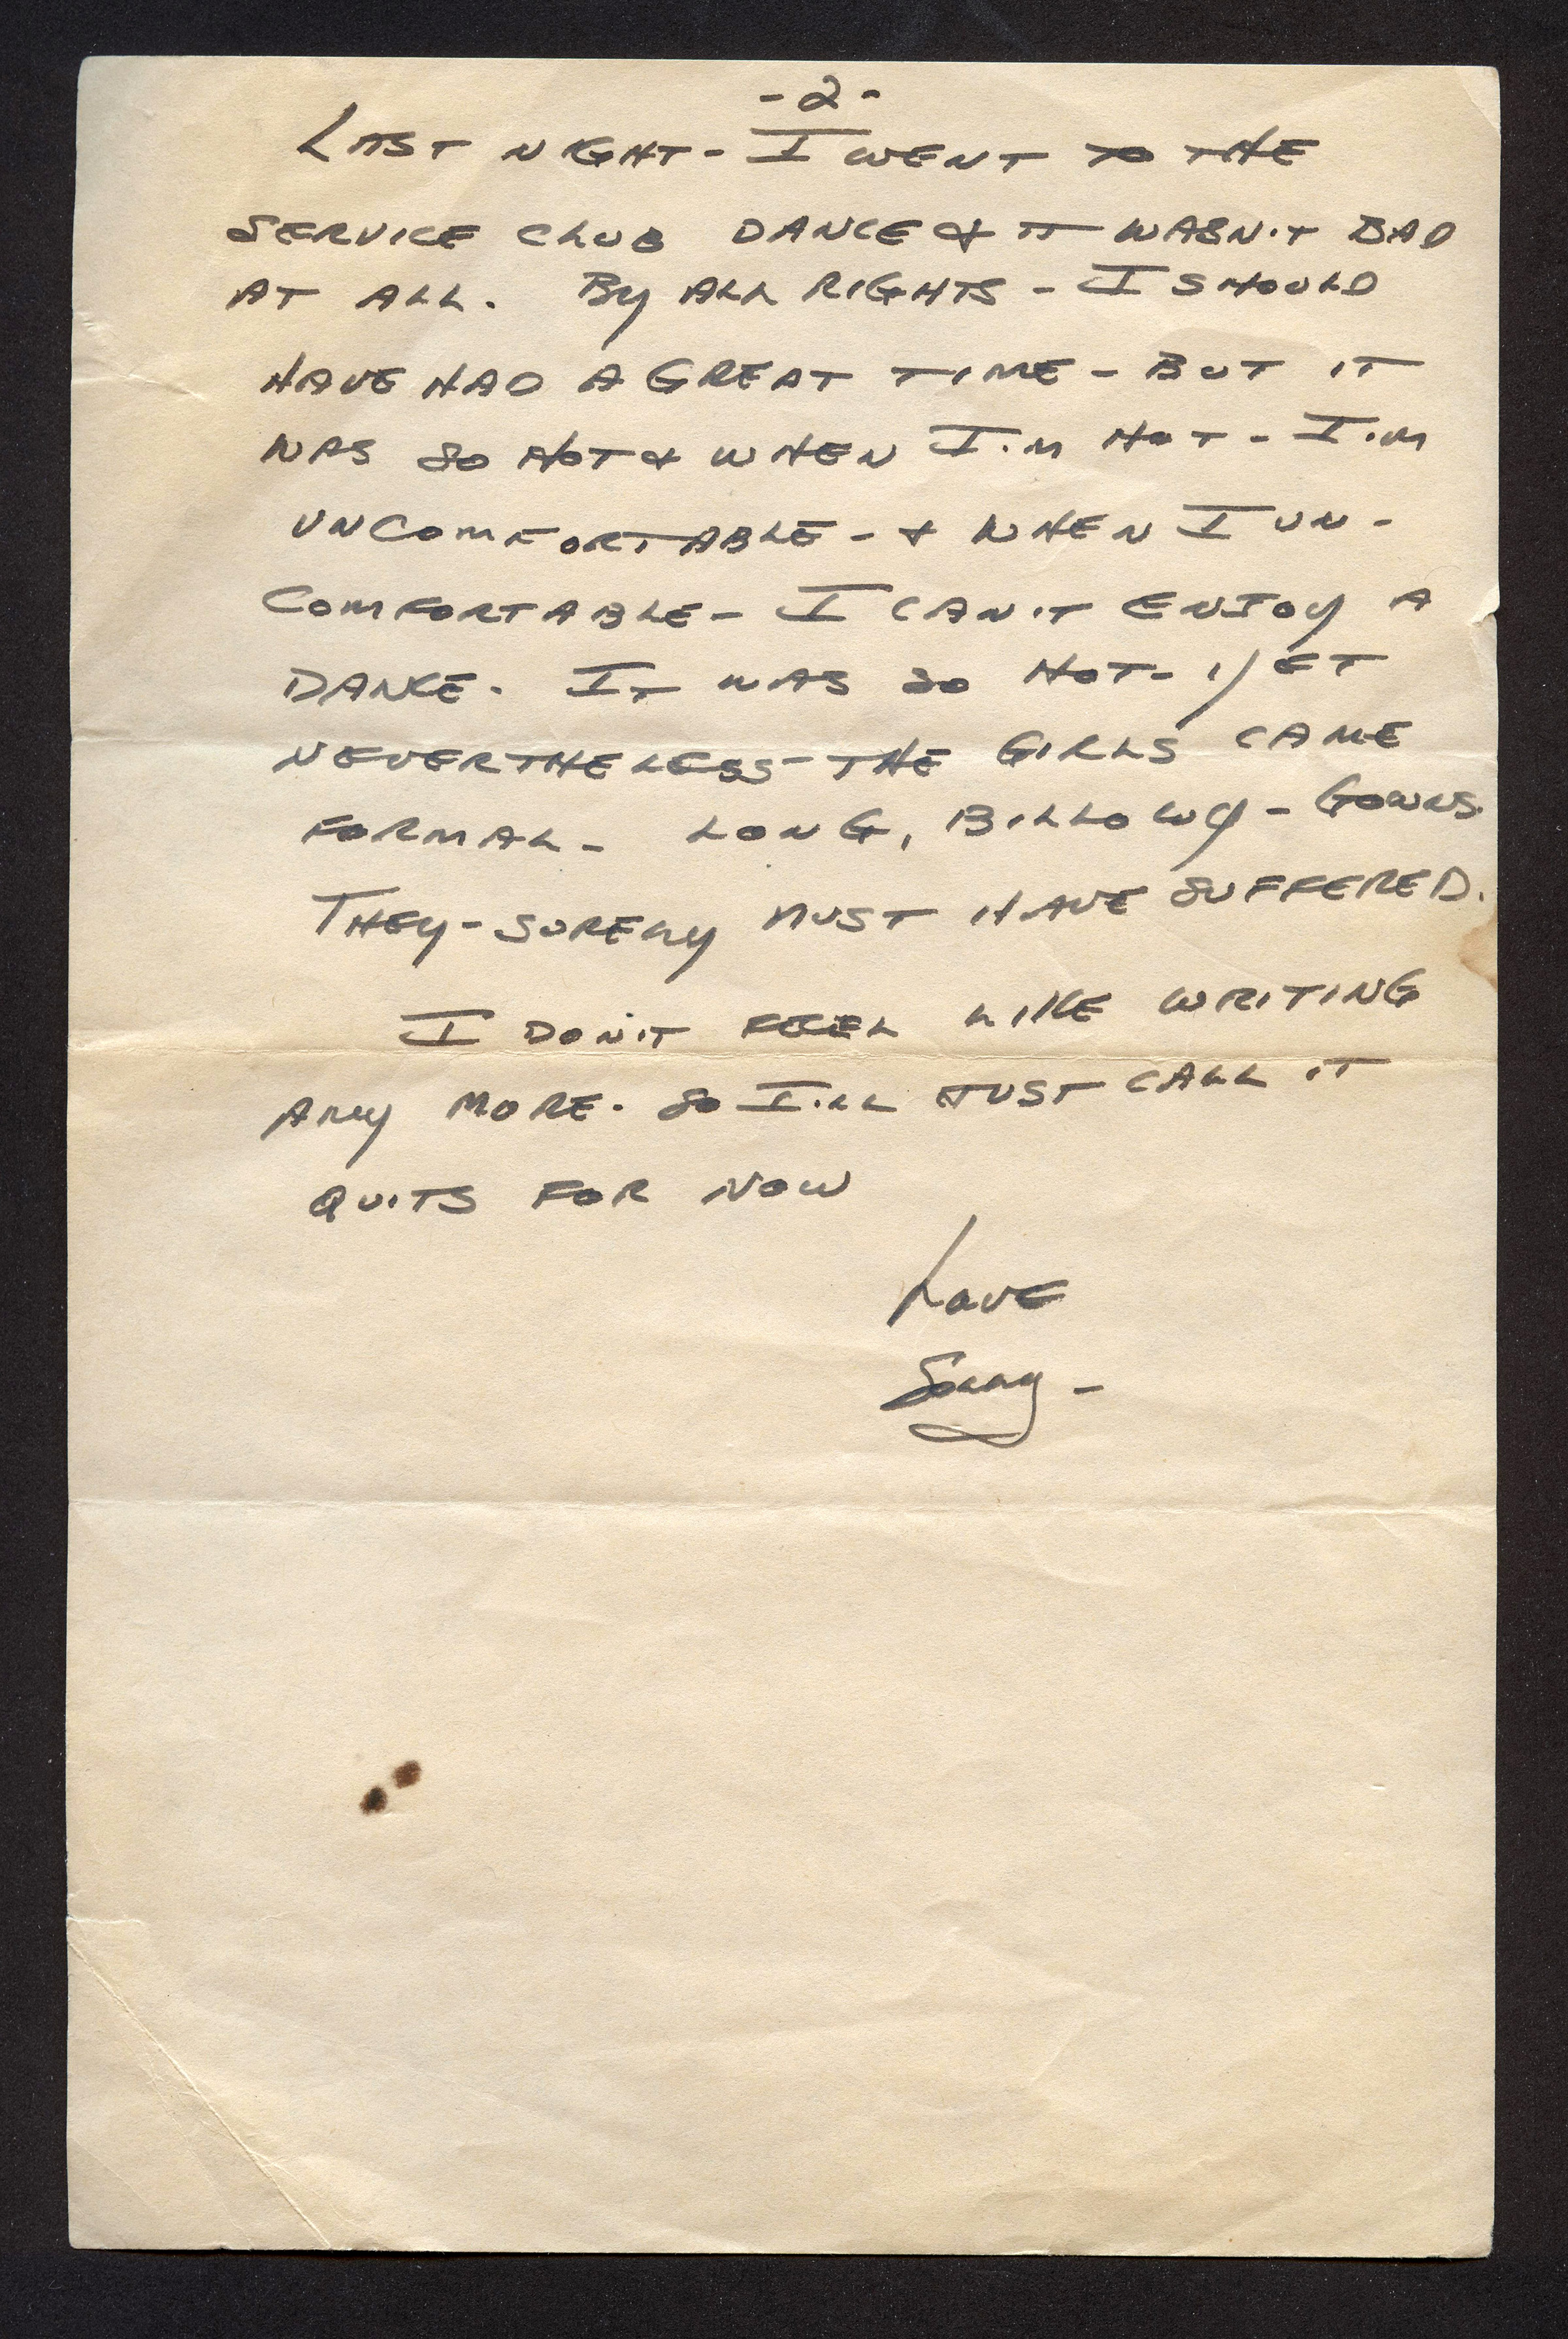 -2-
LAST NIGHT - I WENT TO THE
SERVICE CLUB DANCE & IT WASN'T BAD
AT ALL. BY ALL RIGHTS - I SHOULD
HAVE HAD A GREAT TIME - BUT IT
WAS SO HOT & WHEN I'M HOT - I'M
UNCOMFORTABLE - & WHEN I UN-
COMFORTABLE - I CAN'T ENJOY A
DANCE. IT WAS SO HOT - YET
NEVERTHELESS - THE GIRLS CAME
FORMAL - LONG, BILLOWY - GOWNS.
THEY - SURELY MUST HAVE SUFFERED.
I DON'T FEEL LIKE WRITING
ANY MORE. SO I'LL JUST CALL IT
QUITS FOR NOW
LOVE
Sonny -